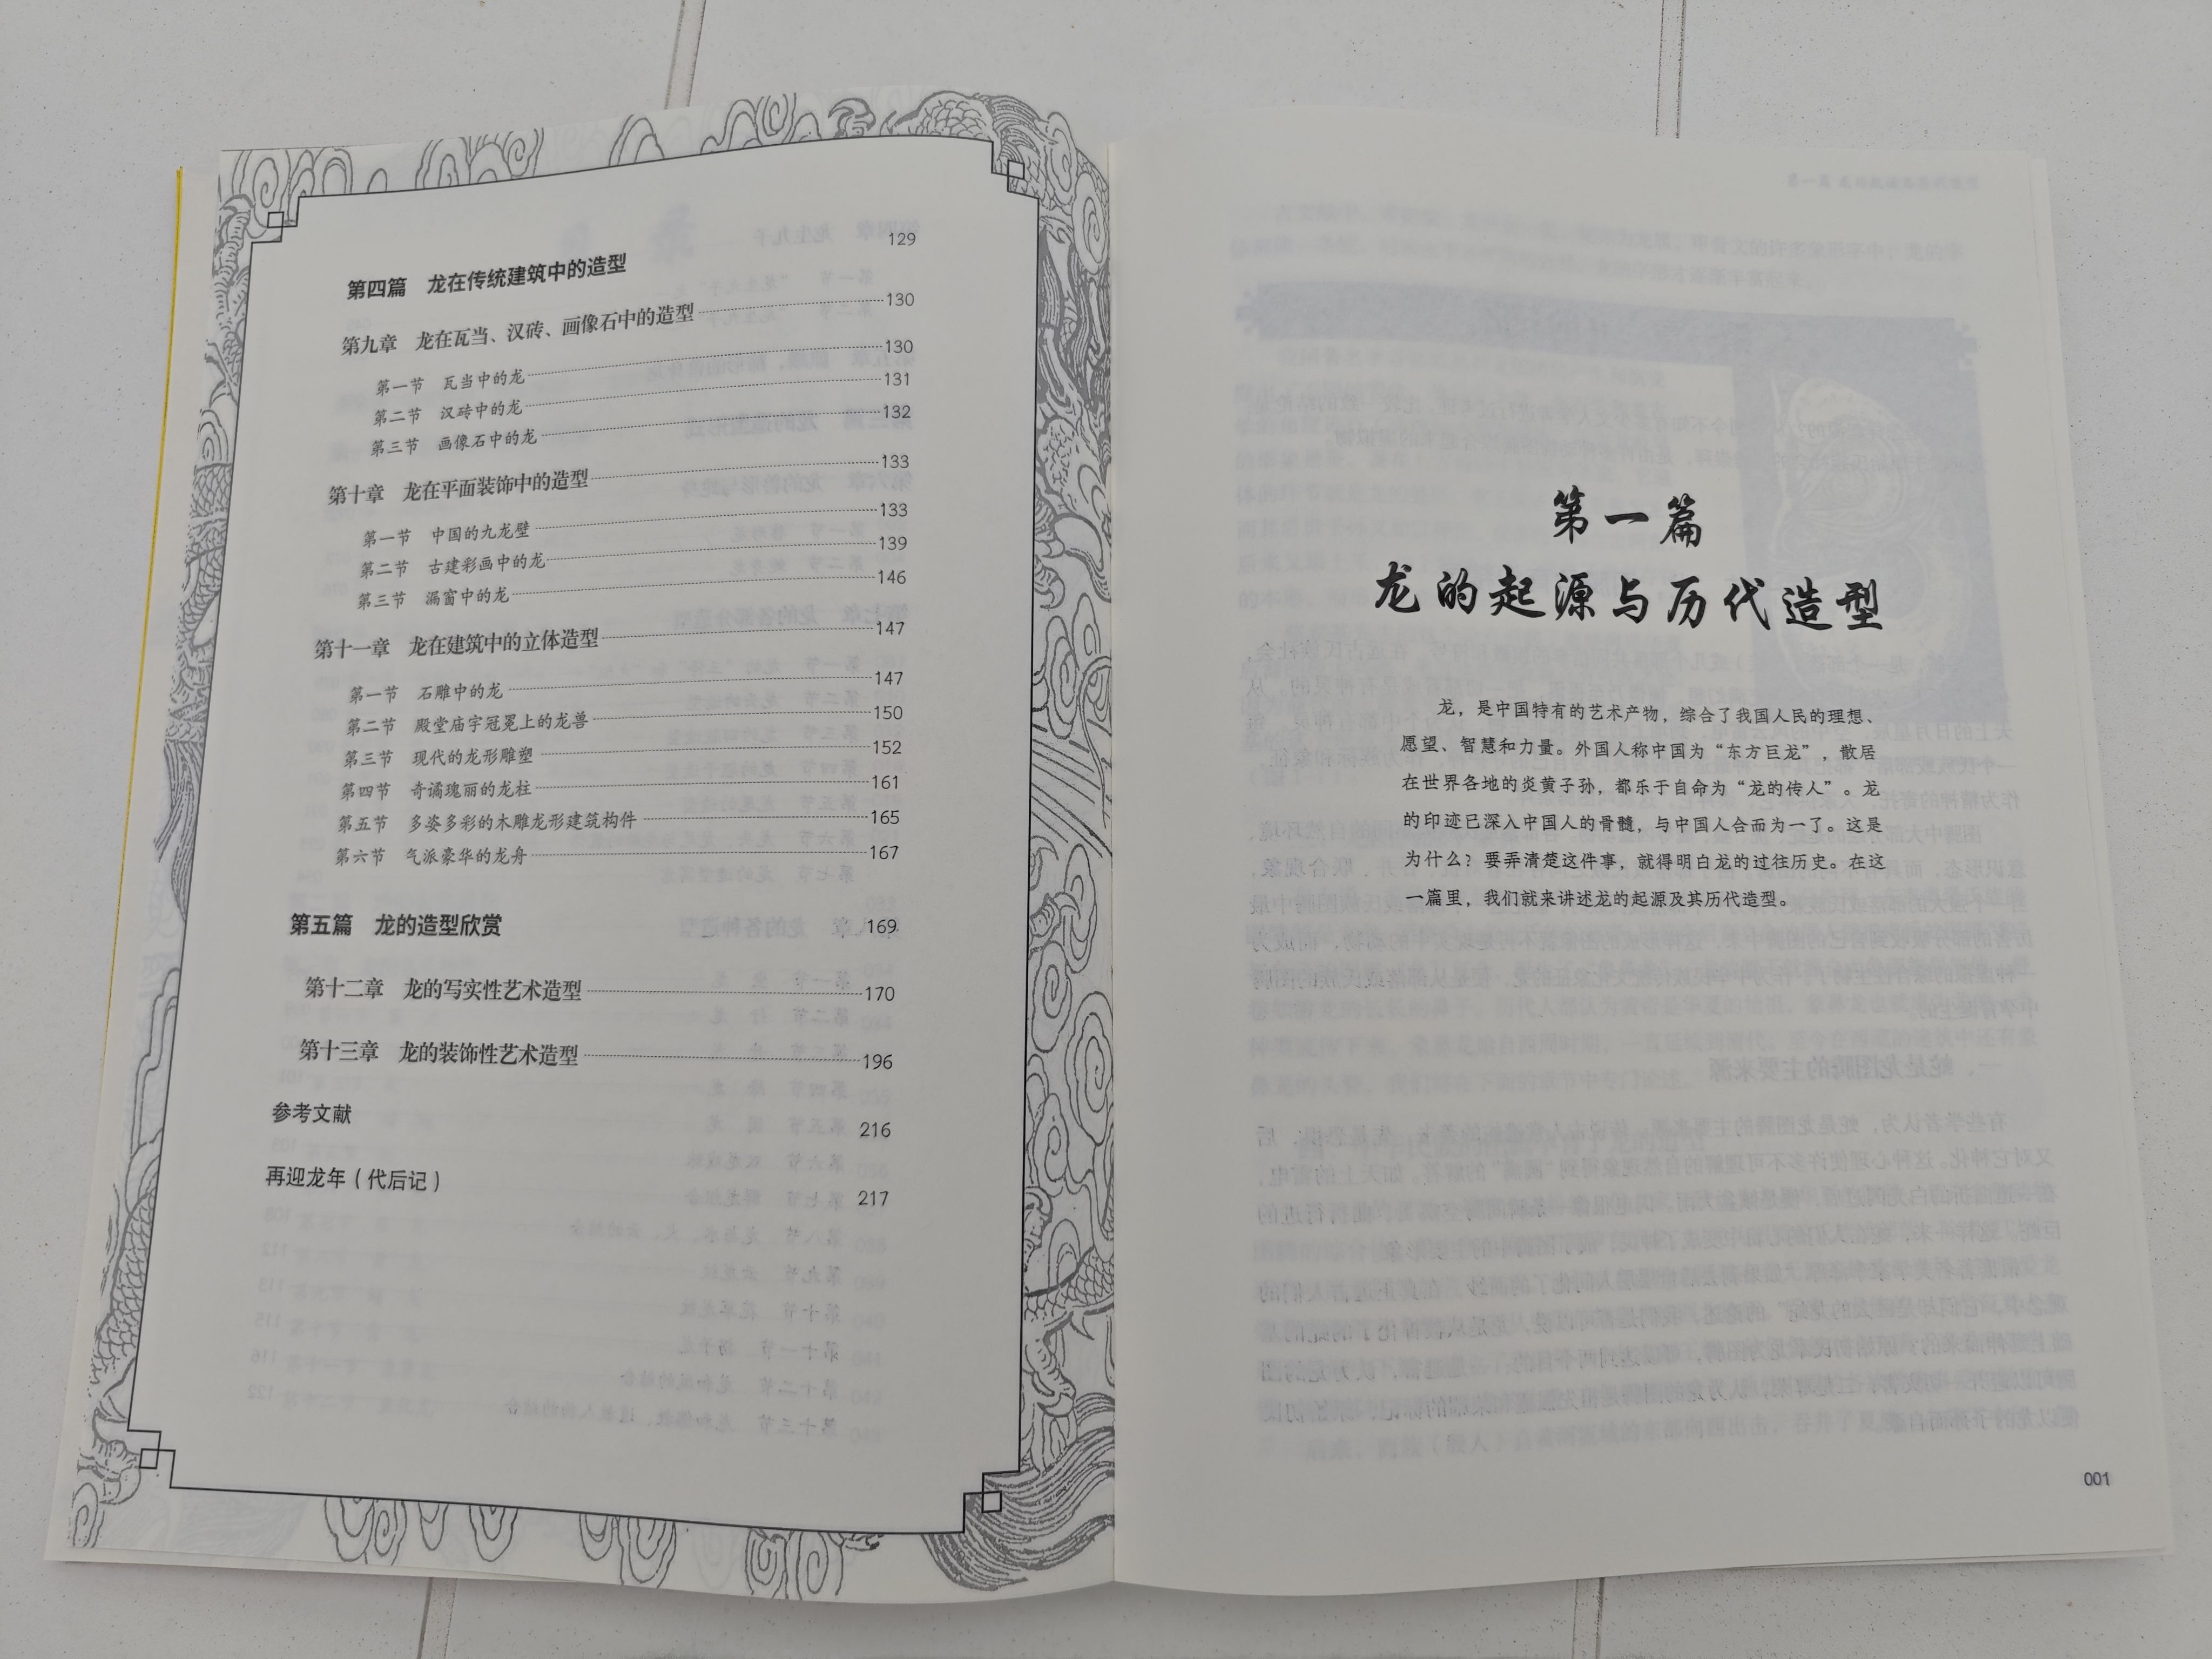 第四篇 龙在传统建筑中的造型 129
第九章 龙在瓦当、汉砖、画像石中的造型 130
第一节 瓦当中的龙 130
第二节 汉砖中的龙 131
第三节 画像石中的龙 132
第十章 龙在平面装饰中的造型 133
第一节 中国的九龙壁 133
第二节 古建彩画中的龙 139
第三节 漏窗中的龙 146
第十一章 龙在建筑中的立体造型 147
第一节 石雕中的龙 147
第二节 殿堂庙宇冠冕上的龙兽 150
第三节 现代的龙形雕塑 152
第四节 奇谲瑰丽的龙柱 161
第五节 多姿多彩的木雕龙形建筑构件 165
第六节 气派豪华的龙舟 167
第五篇 龙的造型欣赏 169
第十二章 龙的写实性艺术造型 170
第十三章 龙的装饰性艺术造型 196
参考文献 216
再迎龙年（代后记） 217
第一篇
龙的起源与历代造型
龙，是中国特有的艺术产物，综合了我国人民的理想、
愿望、智慧和力量。外国人称中国为“东方巨龙”，散居
在世界各地的炎黄子孙，都乐于自命为“龙的传人”。龙
的印迹已深入中国人的骨髓，与中国人合而为一了。这是
为什么？要弄清楚这件事，就得明白龙的过往历史。在这
一篇里，我们就来讲述龙的起源及其历代造型。
001